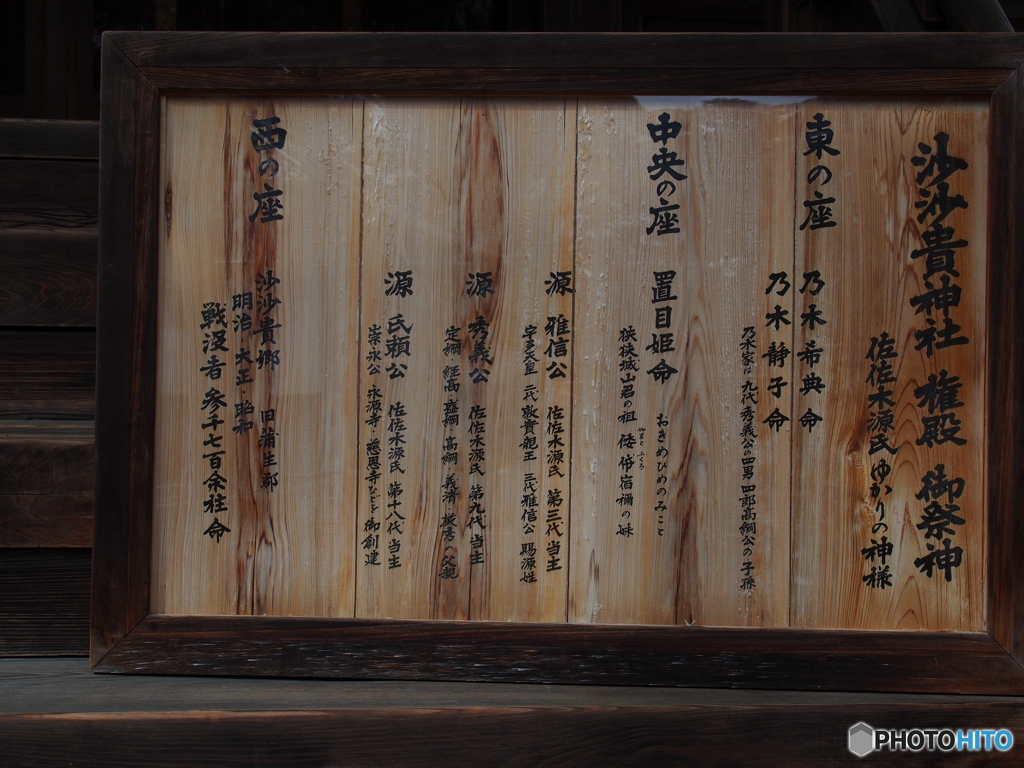 沙沙貴神社 権殿 御祭神
佐佐木源氏ゆかりの神様
東の座
乃木希典命
乃木静子命
乃木家は九代秀義公の四男四郎高綱公の子孫
中央の座
置目姫命 おきめひめのみこと
狭狭城山君の祖 倭帒宿禰の妹
やまと ふくろ
源 雅信公 佐佐木源氏 第三代当主
宇多天皇 二代敦實親王 三代雅信公 賜源姓
源 秀義公 佐佐木源氏 第九代当主
定綱・経高・盛綱・高綱・義清・厳秀の父親
源 氏頼公 佐佐木源氏 第十八代当主
崇永公 永源寺・慈恩寺などを御創建
西の座
沙沙貴郷 旧蒲生郡
明治 大正 昭和
戦没者 参千七百余柱命
PHOTOHITO